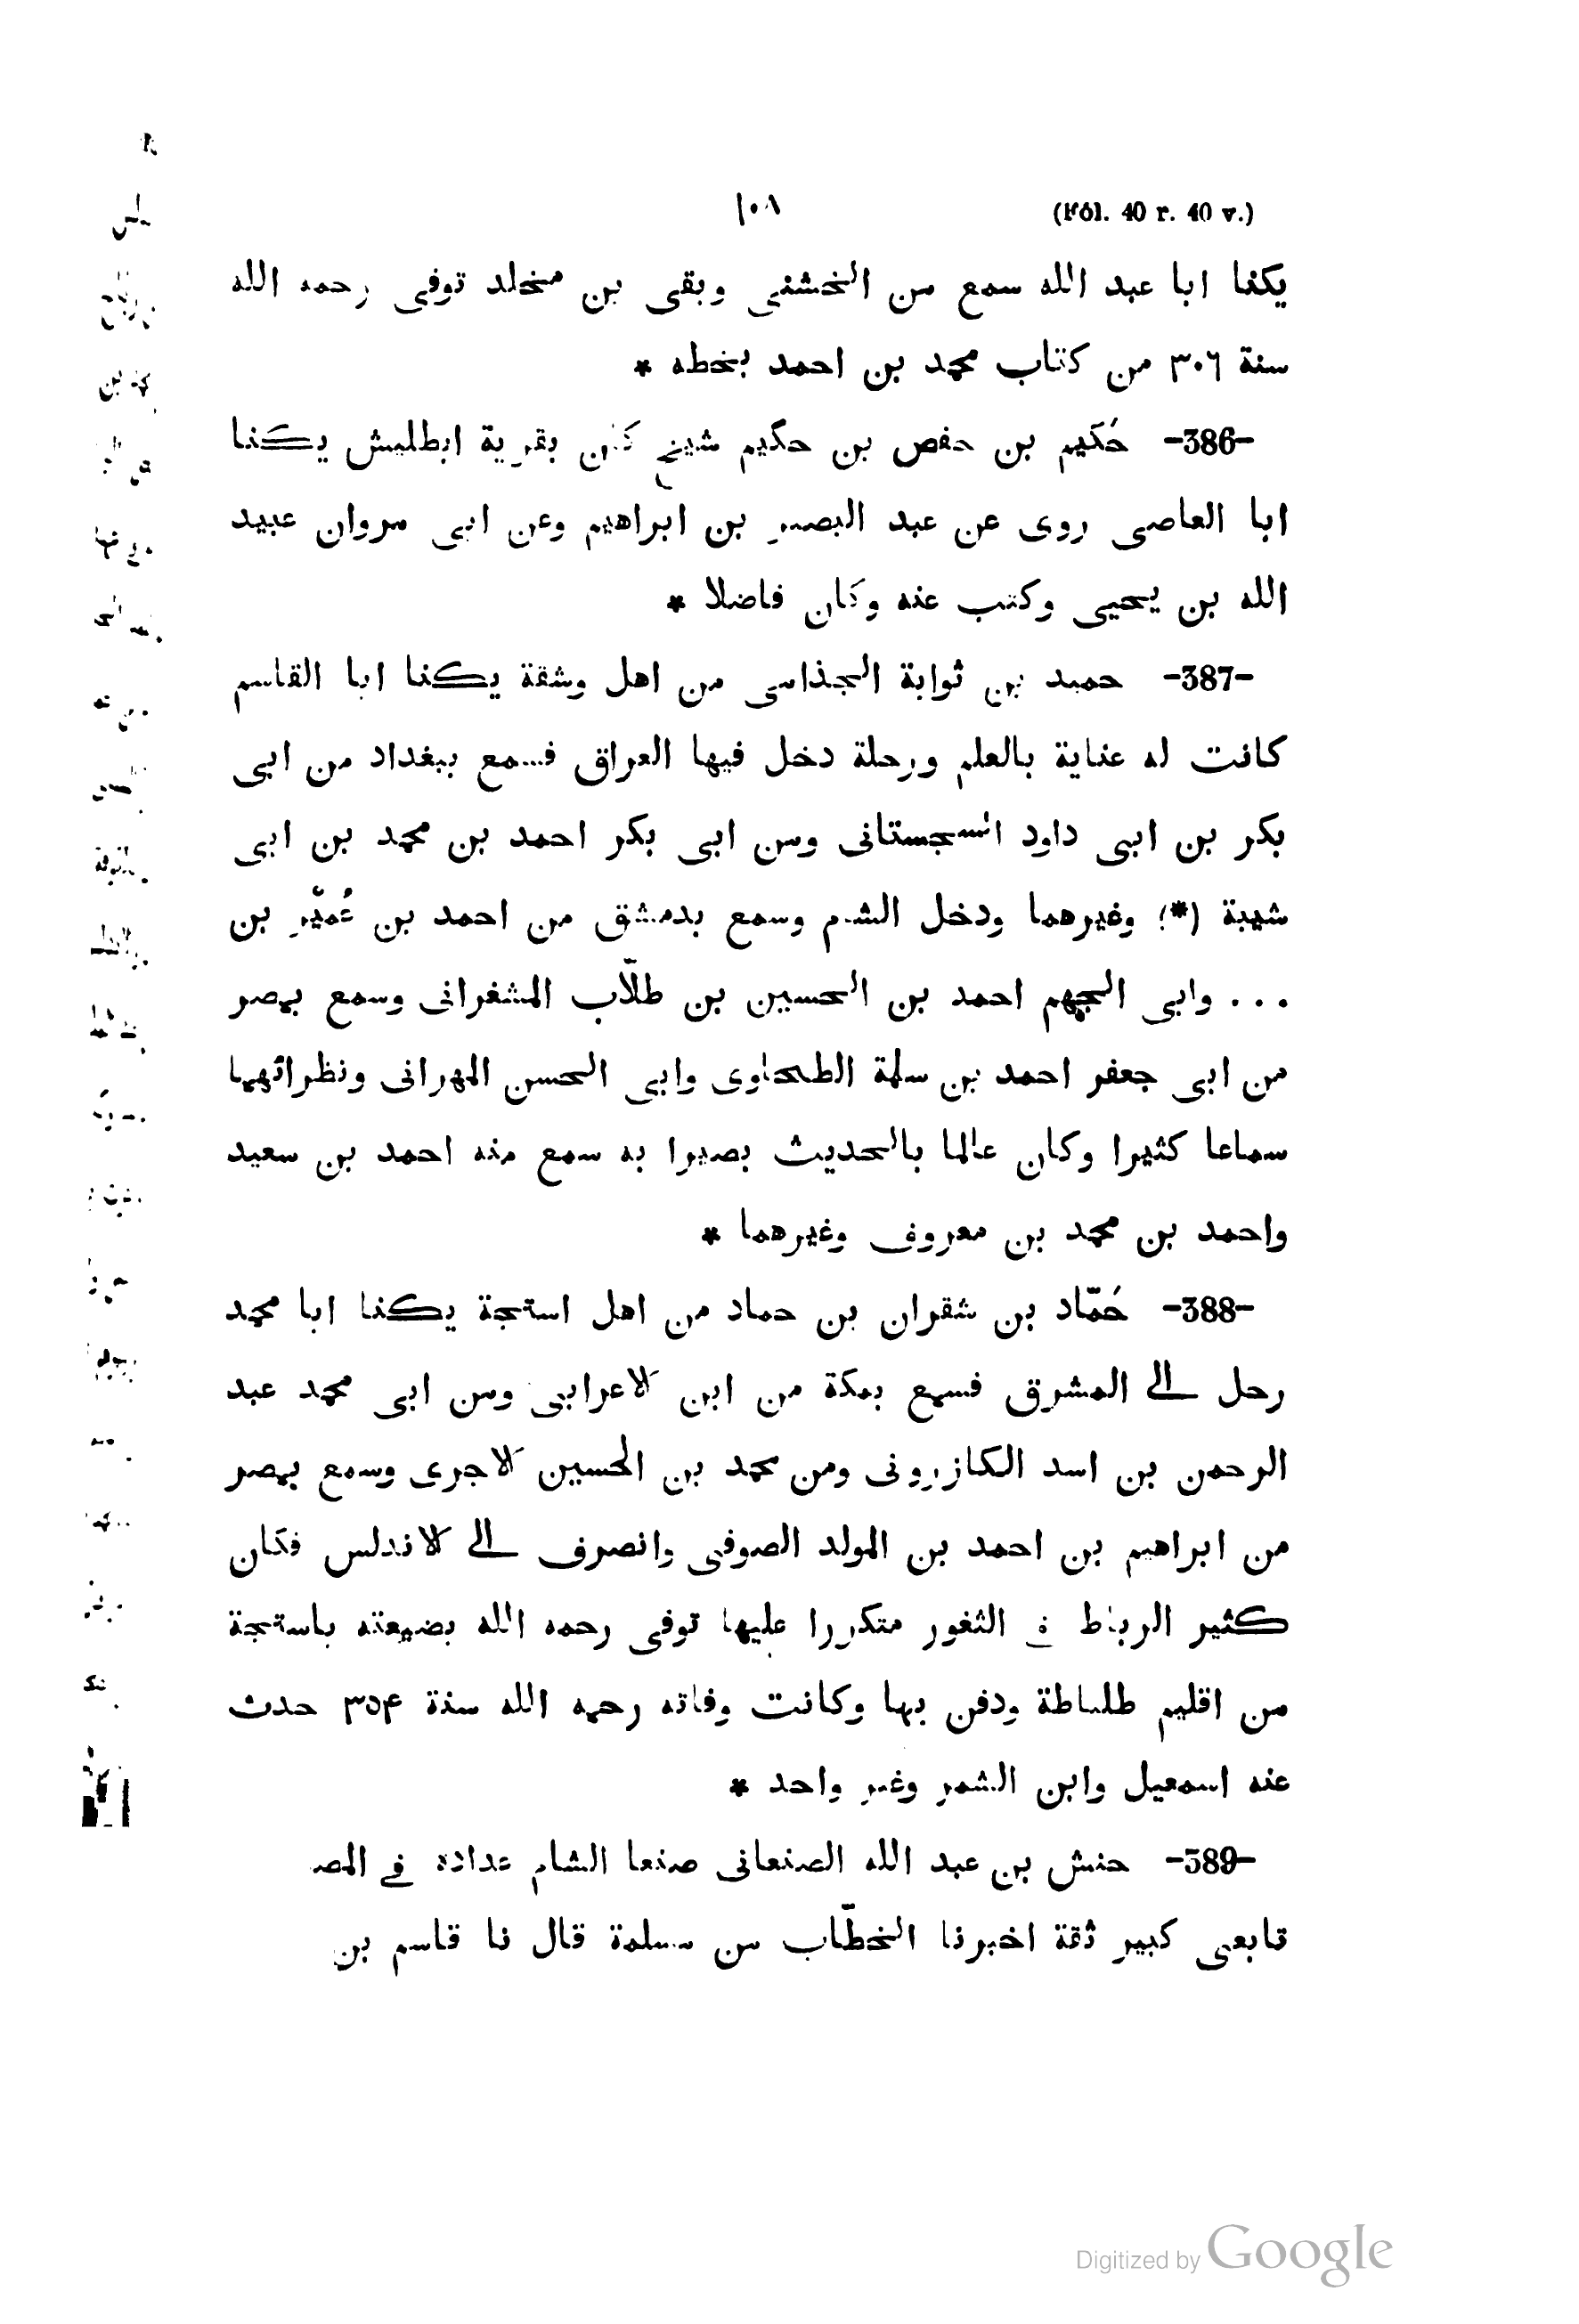 (Fól. 40 r. 40 v.) ١٠٨
يكنا ابا عبد الله سمع من الخشنى وبقى بن مخلد توفى رحمه الله
سنة ٣٠٦ من كتاب محمد بن احمد بخطه *
-386- حَكيم بن حفص بن حكيم شيخ كان بقرية ابطليش يكنا
ابا العاصى روى عن عبد البصير بن ابراهيم وعن ابى مروان عبيد
الله بن يحيى وكتب عنه وكان فاضلا *
-387- حميد بن ثوابة الجذامى من اهل وشقة يكنا ابا القاسم
كانت له عناية بالعلم ورحلة دخل فيها العراق فسمع ببغداد من ابى
بكر بن ابى داود السجستانى ومن ابى بكر احمد بن محمد بن ابى
شيبة (*) وغيرهما ودخل الشام وسمع بدمشق من احمد بن عُميْر بن
... وابى الجهم احمد بن الحسين بن طلّاب المشغرانى وسمع بمصر
من ابى جعفر احمد بن سلمة الطحاوى وابى الحسن المهرانى ونظرائهما
سماعا كثيرا وكان عالما بالحديث بصيرا به سمع منه احمد بن سعيد
واحمد بن محمد بن معروف وغيرهما *
-388- حَمّاد بن شقران بن حماد من اهل استجة يكنا ابا محمد
رحل الے المشرق فسمع بمكة من ابن الاعرابى ومن ابى محمد عبد
الرحمن بن اسد الكازرونى ومن محمد بن الحسين الاجرى وسمع بمصر
من ابراهيم بن احمد بن المولد الصوفى وانصرف الے الاندلس فكان
كثير الرباط فے الثغور متكررا عليها توفى رحمه الله بضيعته باستجة
من اقليم طلباطة ودفن بها وكانت وفاته رحمه الله سنة ٣٥۴ حدث
عنه اسمعيل وابن الشمر وغير واحد *
-389- حنش بن عبد الله الصنعانى صنعا الشام عداده فے المصـ
تابعى كبير ثقة اخبرنا الخطّاب بن مسلمة قال نا قاسم بن
Digitized by Google